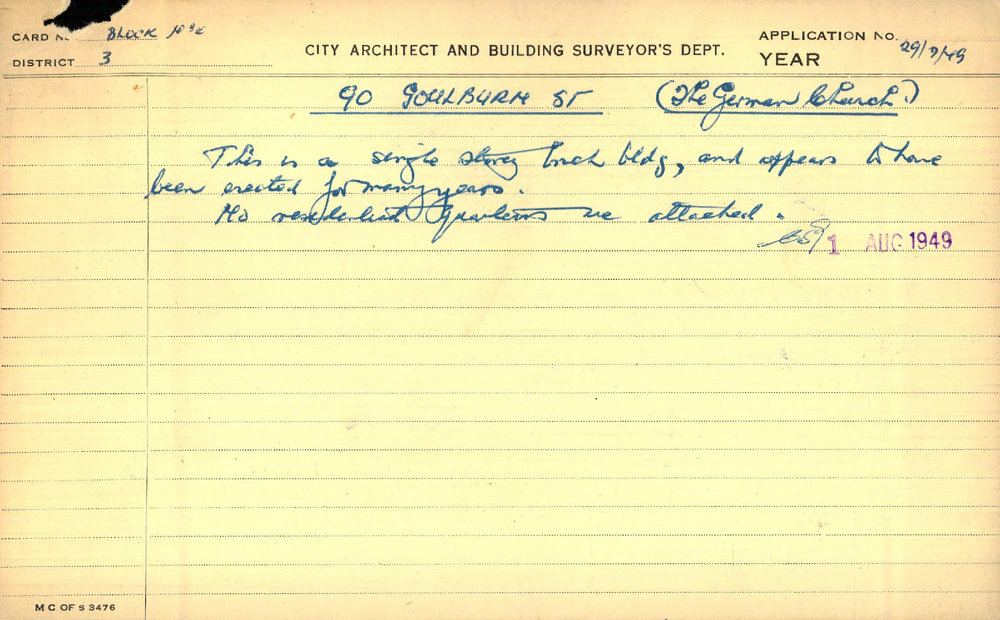 CARD N. BLOCK
DISTRICT 3
CITY ARCHITECT AND BUILDING SURVEYOR'S DEPT.
APPLICATION No. 29/7/49
YEAR
90 GOULBURN ST (The German Church.)
This is a single storey brick bldg, and appears to have
been erected for many years.
No residential quarters are attached.
1 AUG 1949
M C OF S 3476